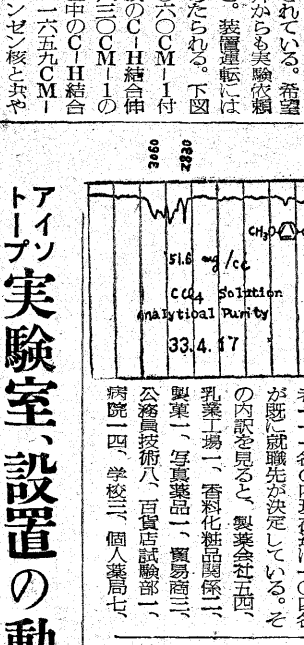 されている。希望
からも実験依頼
。装置運転には
たられる。下図
六〇CM-1付
のC-H結合伸
三〇CM-1の
中のC-H結合
一六五九CM-
ンゼン核と共や
3090
2820
CH₃O
51.6 mg/cc
CCl4 Solution
Analytical Purity
33.4.17
が既に就職先が決定している。そ
の内訳を見ると、製薬会社五四、
乳業工場一、香料化粧品関係二、
製菓一、写真薬品一、貿易商三、
公務員技術八、百貨店試験部一、
病院一四、学校三、個人薬局七、
アイソトープ実験室、設置の動